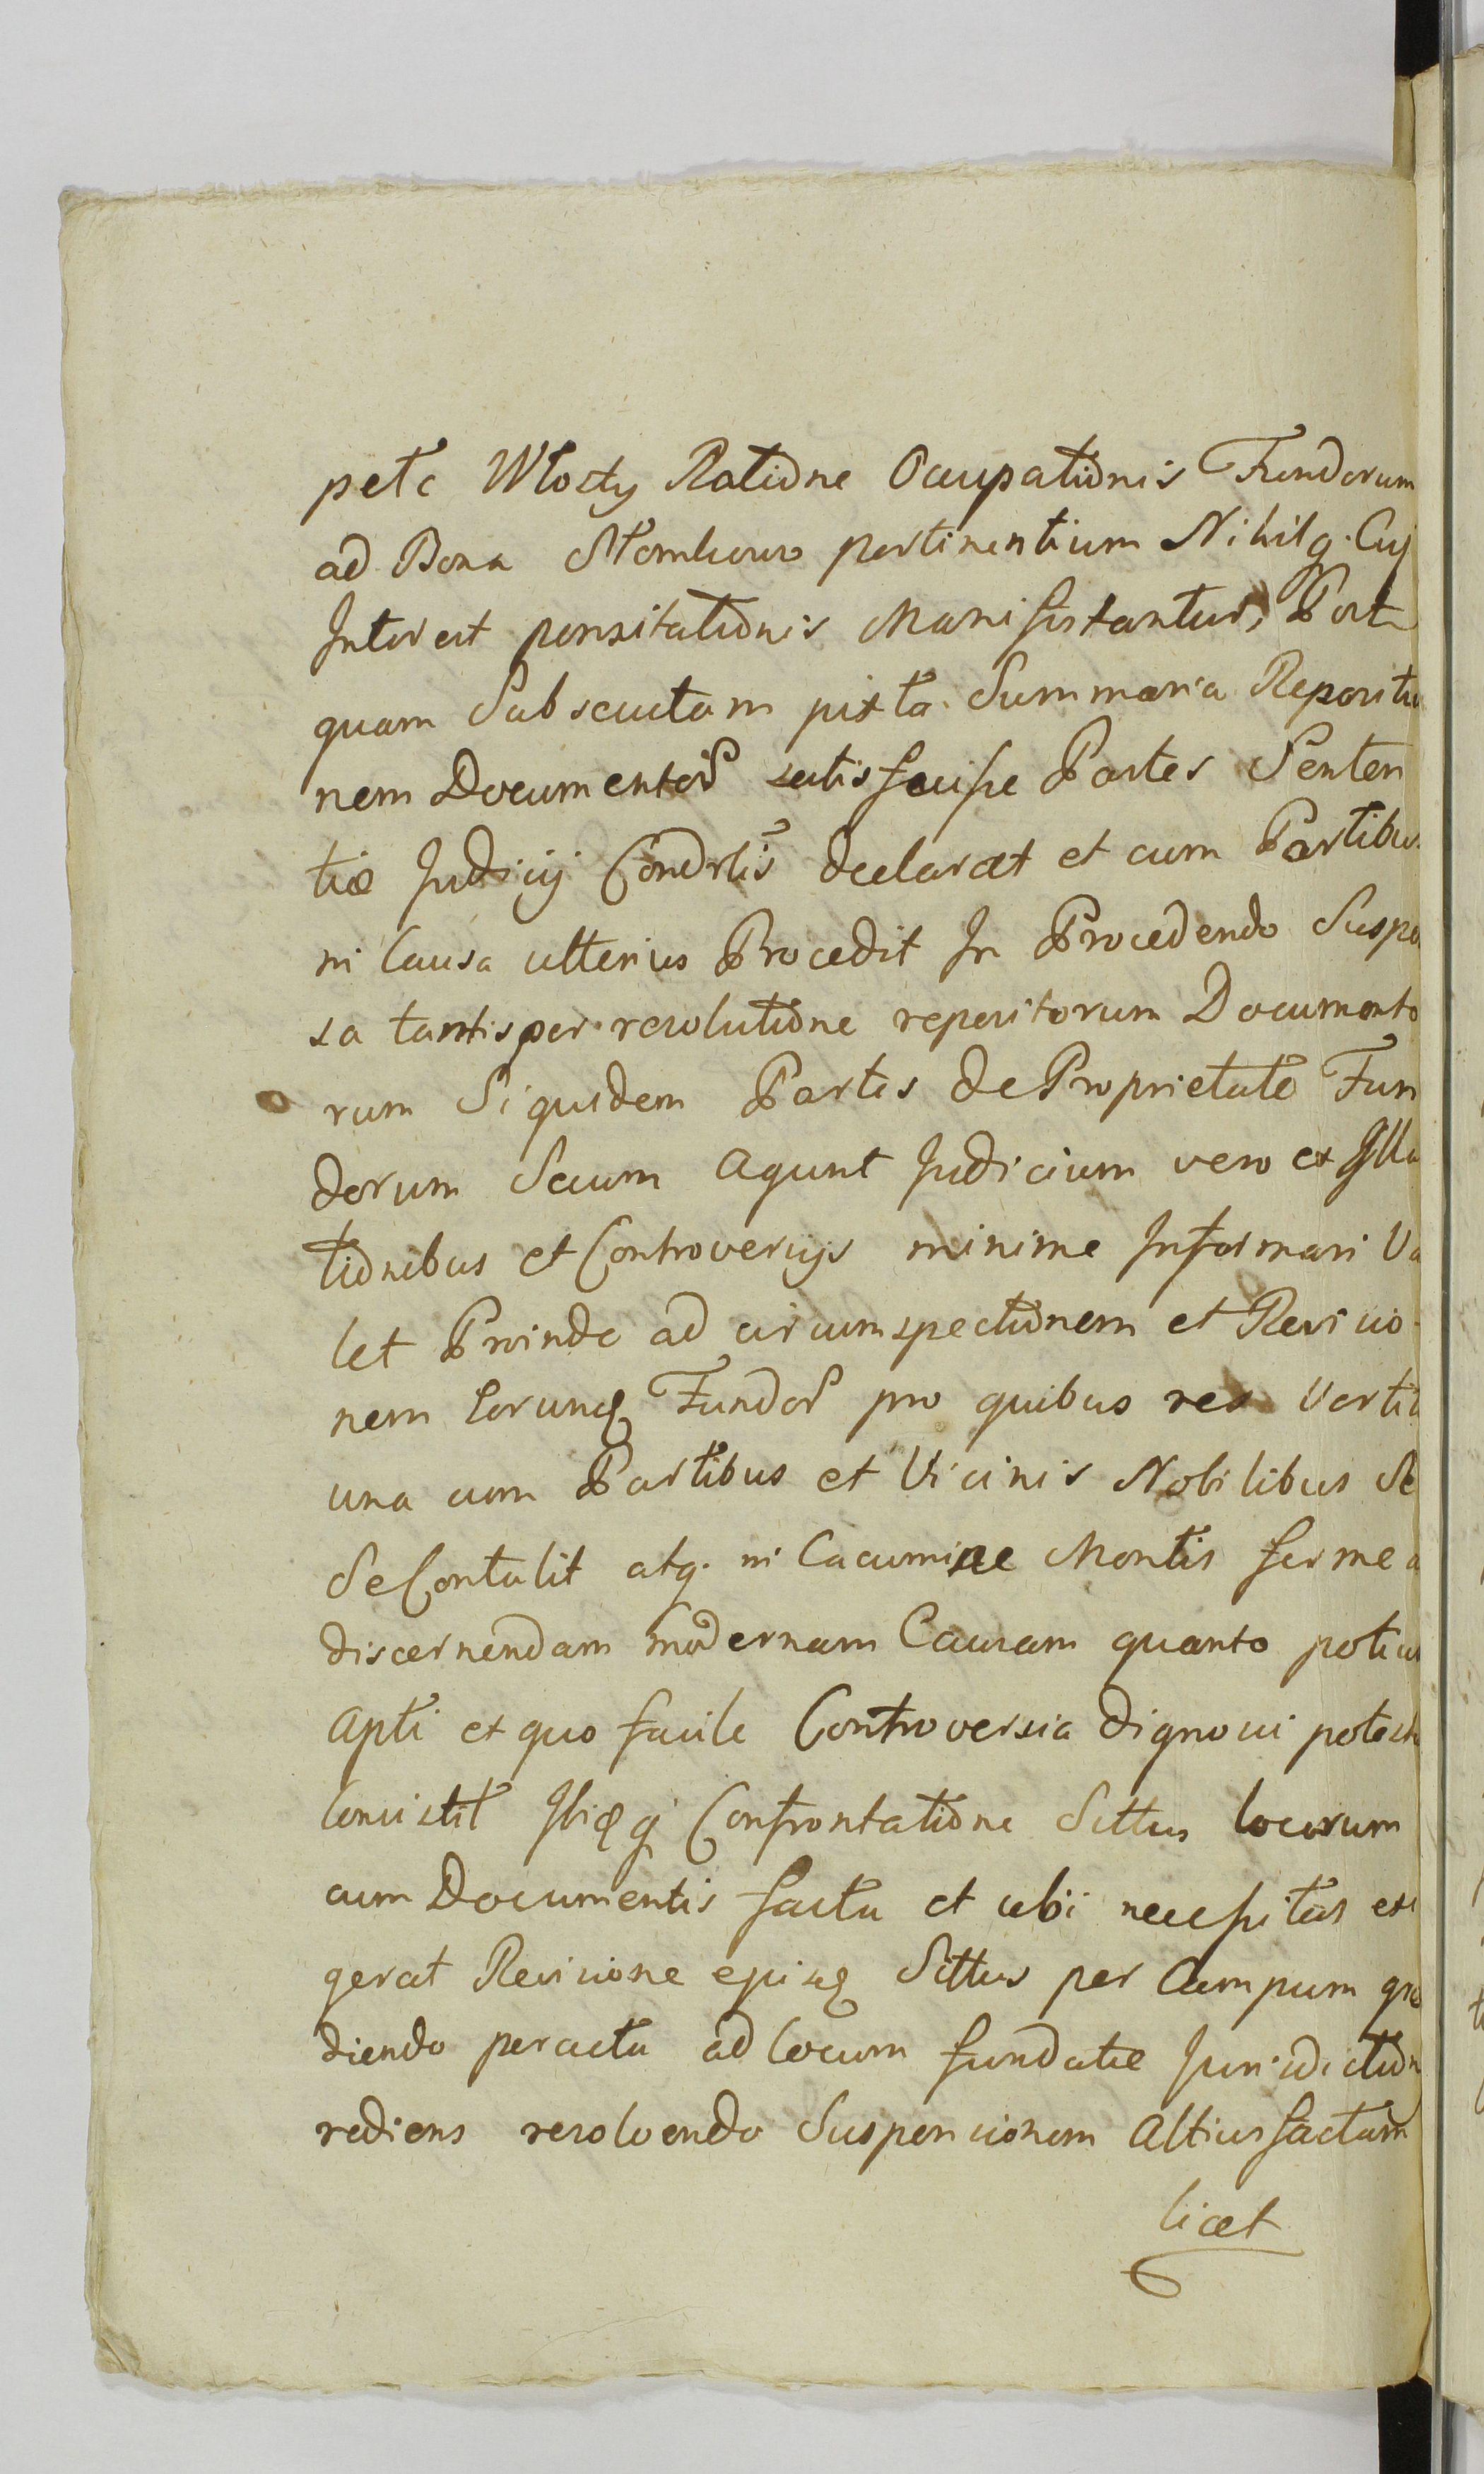 pete Włosty Ratione Occupationis Fundorum
ad Bona Stombow pertinentium Nihilq. Cuj
Interest pensitationis Manifestantur, Post
quam Subsecutam juxta Summaria Repositio
nem Documentor satisfecisse Partes Senten
tiæ Judicij Condrlis declarat et cum Partibus
in Causa ulterius Procedit In Procedendo Suspen
sa tantisper resolutione repositorum Documento
rum Siquidem Partes de Proprietate Fun
dorum Secum Agunt Judicium vero ex Illa
tionibus et Controversijs minime Informari Va
let Proinde ad circumspectionem et Revisio
nem Eorunq Fundor pro quibus res Vertit
una cum Partibus et Vicinis Nobilibus Se
Se Contulit atq. in Cacumine Montis ferme a
discernendam modernam Causam quanto potius
Apti et quo facile Controversia dignosci potest
Consistit Ibiq Confrontatione Sittus locorum
cum Documentis facta et ubi necessitas exi
gerat Revisione ejusq Sittus per Campum gra
diendo peracta ad locum fundatæ Jurisdiction
rediens resolvendo Suspensionem Altius factam
licet